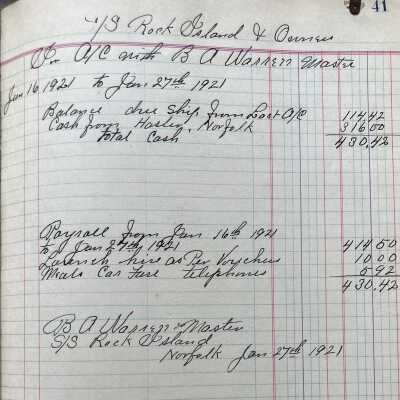 41
S/S Rock Island & Owners
In A/C with B A Warren Master
Jan 16 1921 to Jan 27th 1921
Balance due Ship from Last A/C 114.42
Cash from Hasler, Norfolk 316.00
Total Cash 430.42
Payroll from Jan 16th 1921
to Jan 27th 1921 414.50
Launch hire as Per Vouchers 10.00
Meals Car Fare telephones 5.92
430.42
B A Warren Master
S/S Rock Island
Norfolk Jan 27th 1921